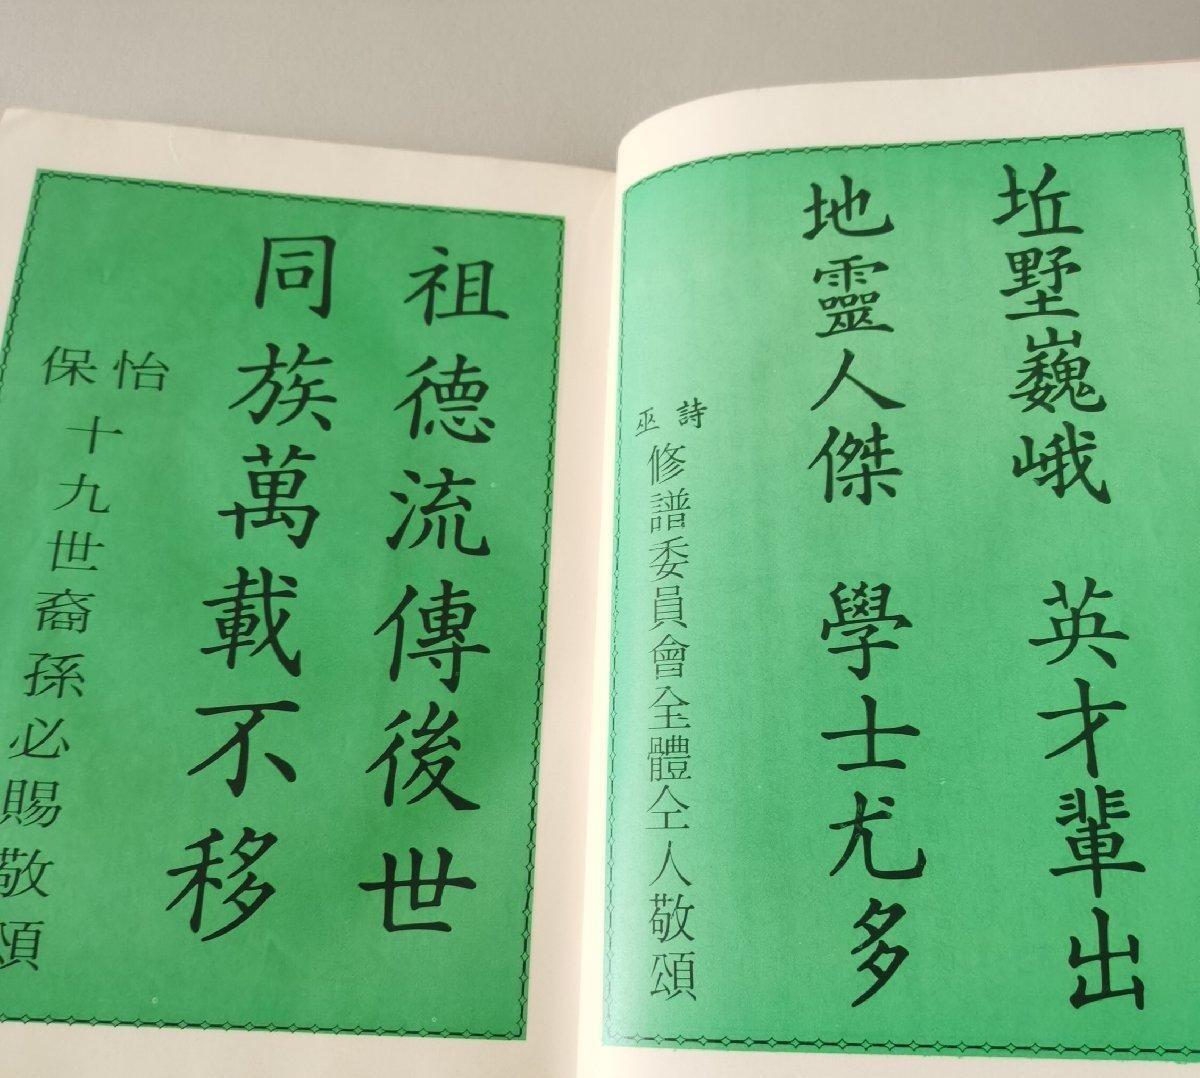 坵墅巍峨 英才輩出
地靈人傑 學士尤多
詩巫修譜委員會全體仝人敬頌
祖德流傳後世
同族萬載不移
怡保十九世裔孫必賜敬頌